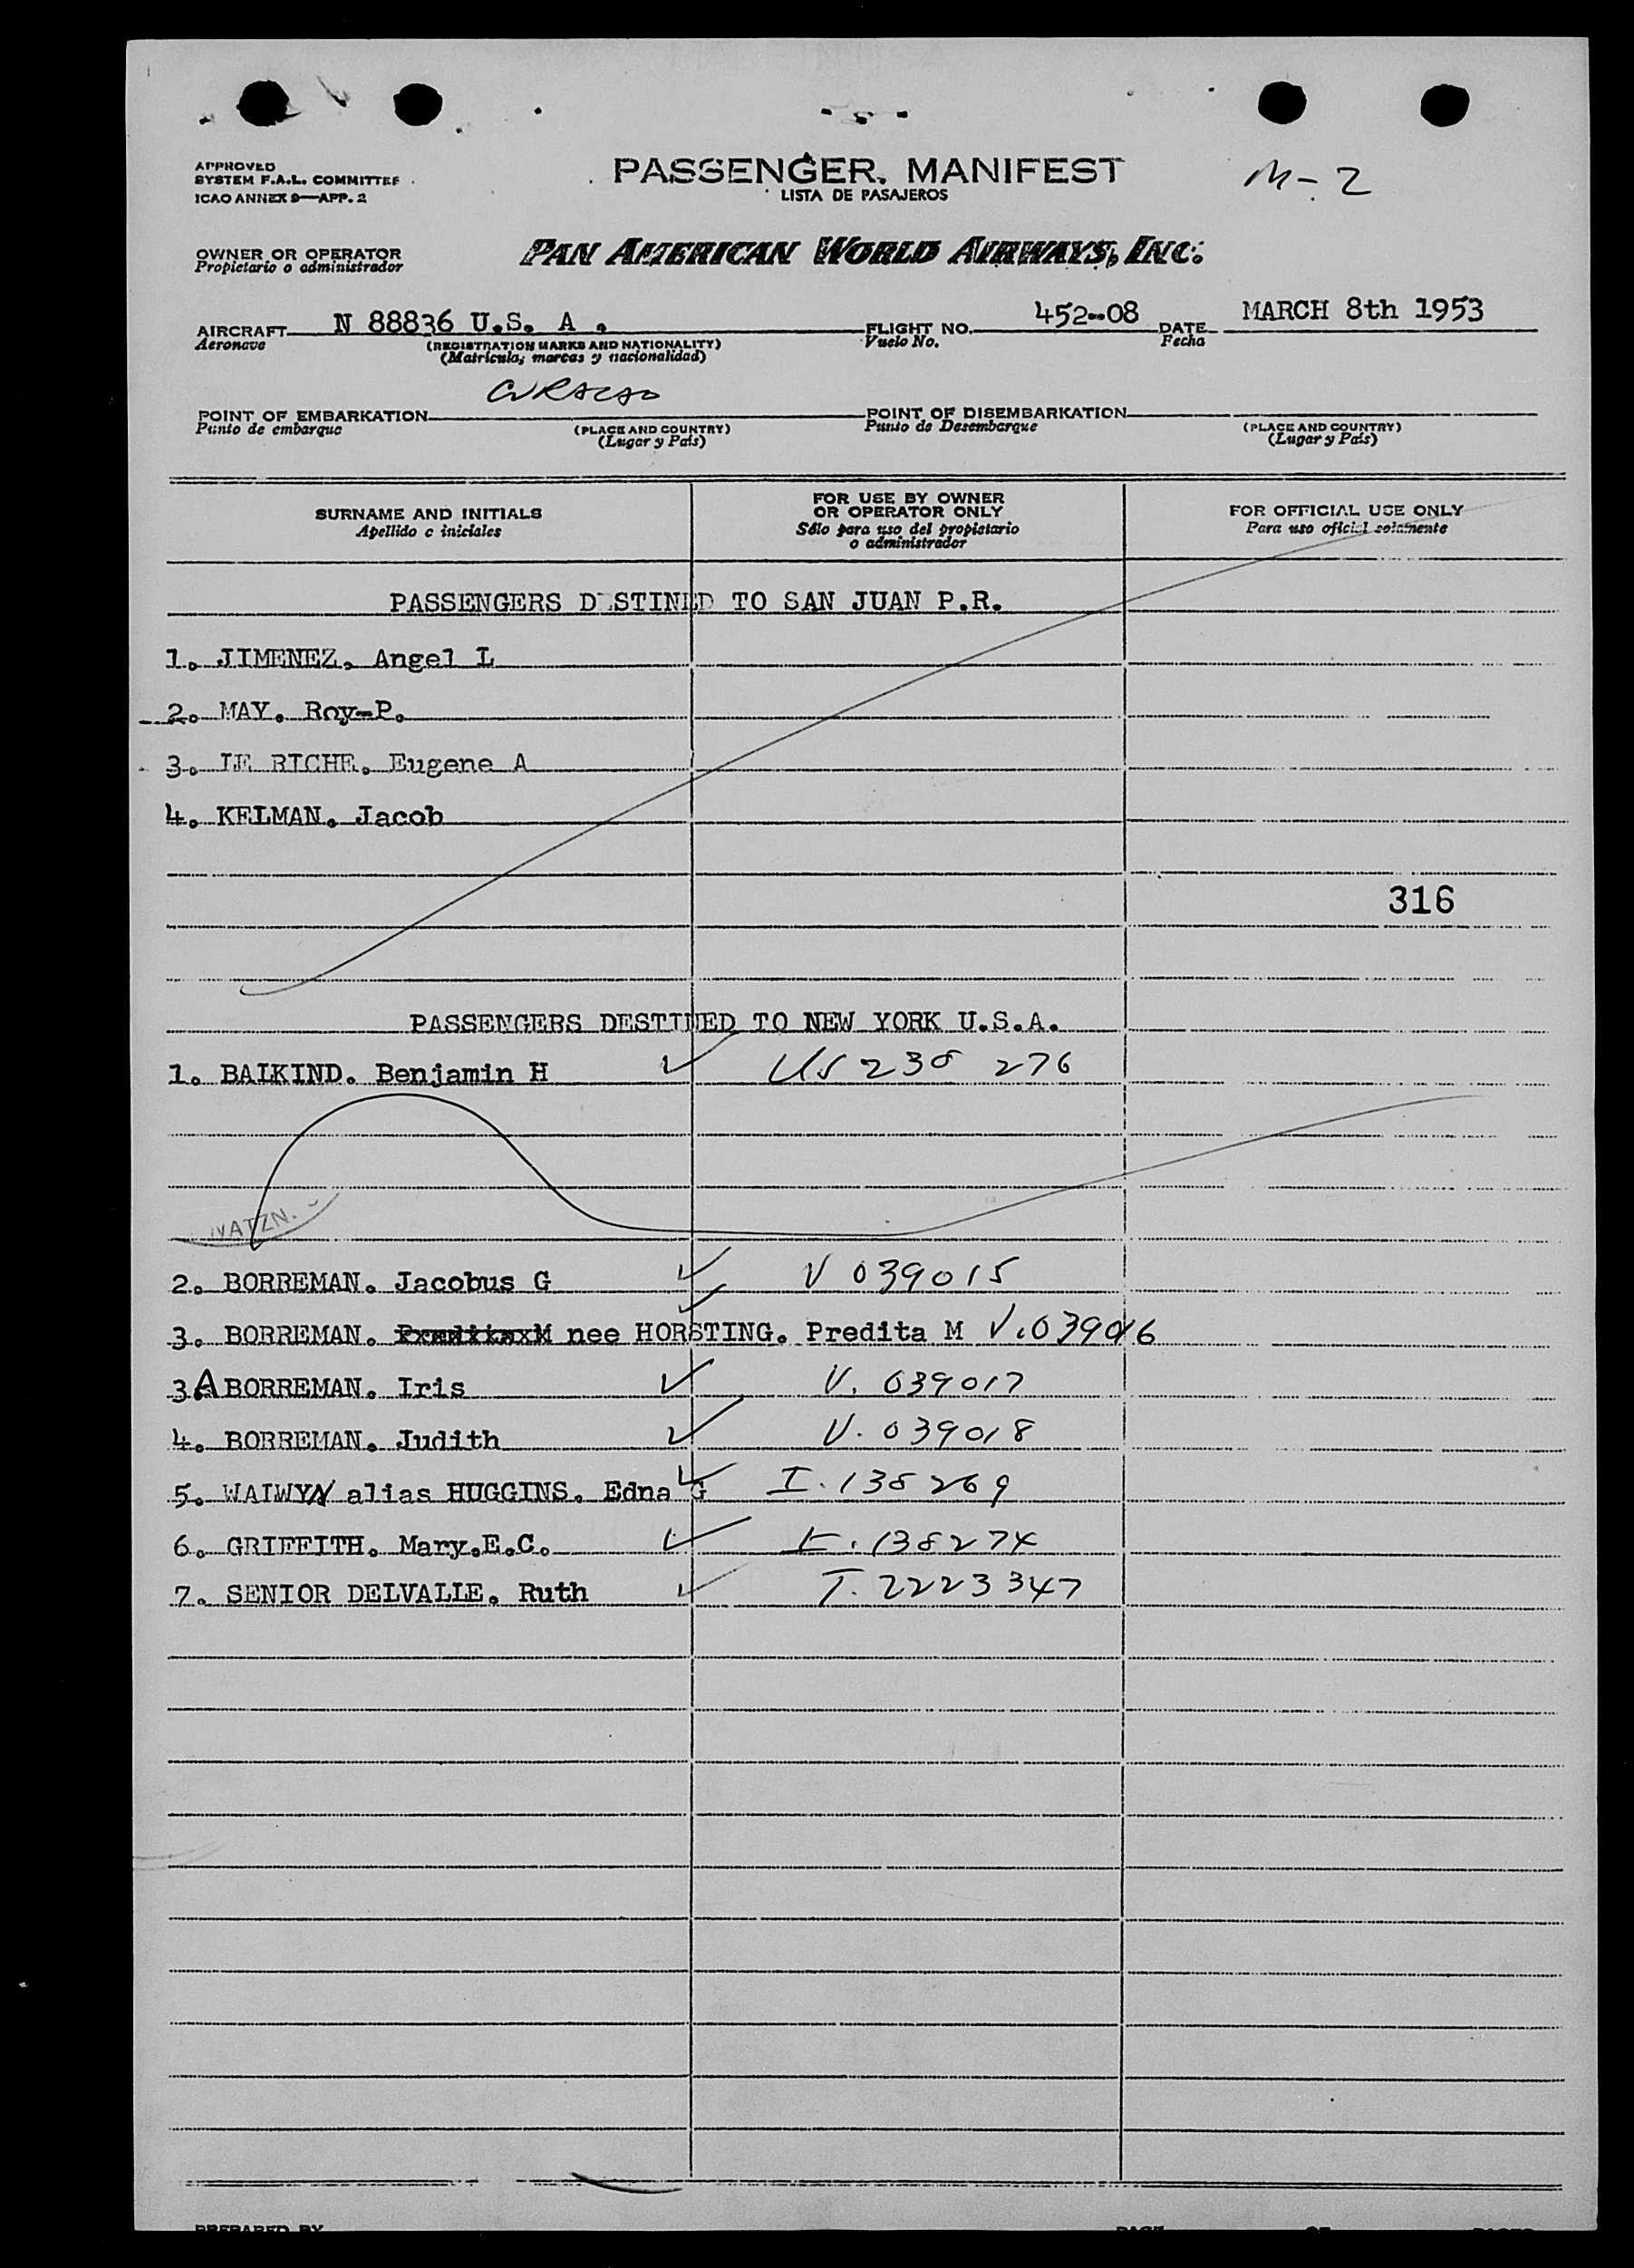 APPROVED
SYSTEM F.A.L. COMMITTEE
ICAO ANNEX 9—APP. 2
PASSENGER MANIFEST
LISTA DE PASAJEROS
M-2
OWNER OR OPERATOR
Propietario o administrador
PAN AMERICAN WORLD AIRWAYS, INC.
AIRCRAFT N 88836 U.S. A . FLIGHT NO. 452--08 DATE MARCH 8th 1953
Aeronave (REGISTRATION MARKS AND NATIONALITY) Vuelo No. Fecha
(Matrícula, marcas y nacionalidad)
POINT OF EMBARKATION CURACAO POINT OF DISEMBARKATION
Punto de embarque (PLACE AND COUNTRY) Punto de Desembarque (PLACE AND COUNTRY)
(Lugar y País) (Lugar y País)
SURNAME AND INITIALS
Apellido e iniciales
FOR USE BY OWNER
OR OPERATOR ONLY
Sólo para uso del propietario
o administrador
FOR OFFICIAL USE ONLY
Para uso oficial solamente
PASSENGERS DESTINED TO SAN JUAN P.R.
1. JIMENEZ. Angel L
2. MAY. Roy-P.
3. LE RICHE. Eugene A
4. KELMAN. Jacob
316
PASSENGERS DESTINED TO NEW YORK U.S.A.
1. BALKIND. Benjamin H US 238 276
NATZN.
2. BORREMAN. Jacobus G V 039015
3. BORREMAN. nee HORSTING. Predita M V.039016
3A BORREMAN. Iris V. 039017
4. BORREMAN. Judith V. 039018
5. WALWYN alias HUGGINS. Edna G I. 138269
6. GRIFFITH. Mary.E.C. I. 138274
7. SENIOR DELVALLE. Ruth T. 2223347
PREPARED BY PAGE OF PAGES